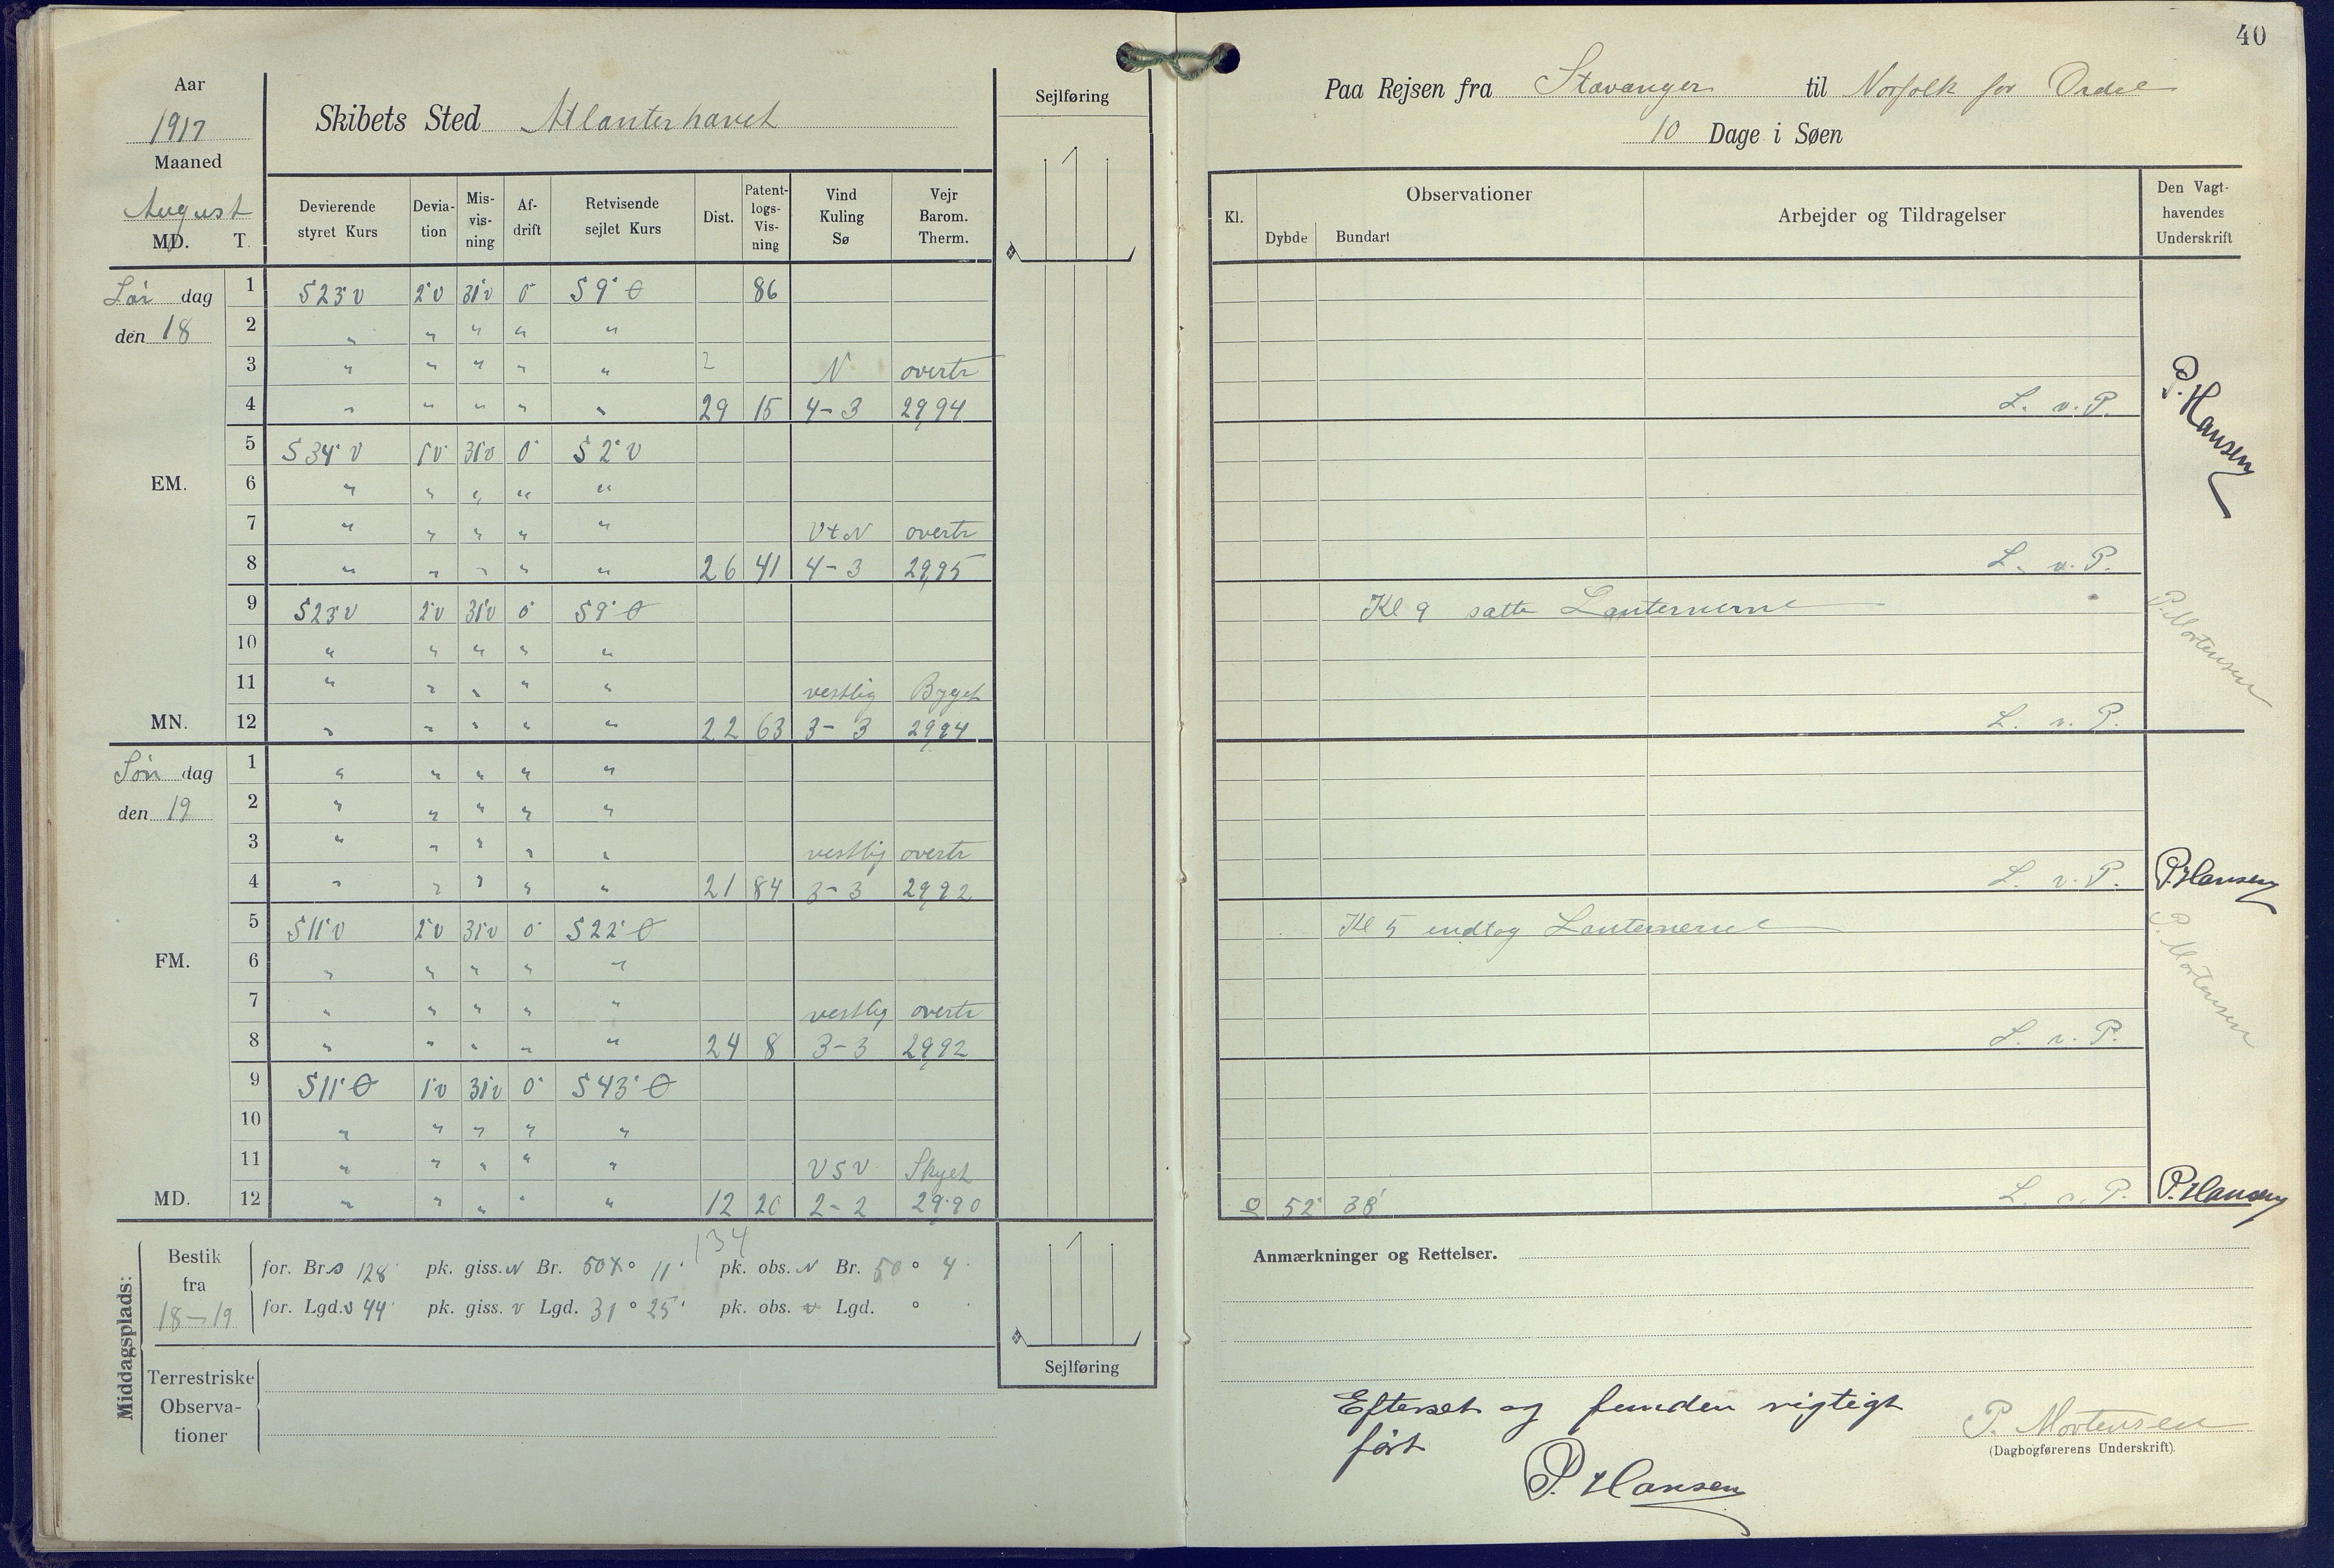 Aar
1917
Maaned
August
MD. T.
Skibets Sted Atlanterhavet
Sejlføring
Devierende styret Kurs | Devia-tion | Mis-vis-ning | Af-drift | Retvisende sejlet Kurs | Dist. | Patent-logs-Vis-ning | Vind Kuling Sø | Vejr Barom. Therm.
Lør dag 1 S23°V 2°V 31°V 0° S9°Ø 86
den 18 2 " " " " "
3 " " " " " N overtr
4 " " " " " 29 15 4-3 29,94
5 S34°V 1°V 31°V 0° S2°V
EM. 6 " " " " "
7 " " " " " VtN overtr
8 " " " " " 26 41 4-3 29,95
9 S23°V 2°V 31°V 0° S9°Ø
10 " " " " "
11 " " " " " vestlig Byget
MN. 12 " " " " " 22 63 3-3 29,94
Søn dag 1 " " " " "
den 19 2 " " " " "
3 " " " " " vestlig overtr
4 " " " " " 21 84 3-3 29,92
5 S11°V 2°V 31°V 0° S22°Ø
FM. 6 " " " " "
7 " " " " " vestlig overtr
8 " " " " " 24 8 3-3 29,92
9 S11°Ø 1°V 31°V 0° S43°Ø
10 " " " " "
11 " " " " " VSV Skyet
MD. 12 " " " " " 12 20 2-2 29,90
134
Middagsplads:
Bestik fra 18-19
for. Br. S 128' pk. giss. N Br. 50° 11' pk. obs. N Br. 50° 4'
for. Lgd. V 44' pk. giss. V Lgd. 31° 25' pk. obs. V Lgd. ° '
Terrestriske Observa-tioner
Sejlføring
40
Paa Rejsen fra Stavanger til Norfolk for Order
10 Dage i Søen
Kl. | Observationer | Dybde | Bundart | Arbejder og Tildragelser | Den Vagt-havendes Underskrift
L. v. P. P. Hansen
L. v. P.
Kl 9 satte Lanternerne
P. Mortensen
L. v. P.
L. v. P. P. Hansen
Kl 5 indtog Lanternerne
P. Mortensen
L. v. P.
52° 38' L. v. P. P. Hansen
Anmærkninger og Rettelser.
Efterset og funden rigtigt
ført
P. Hansen
P. Mortensen
(Dagbogførerens Underskrift).